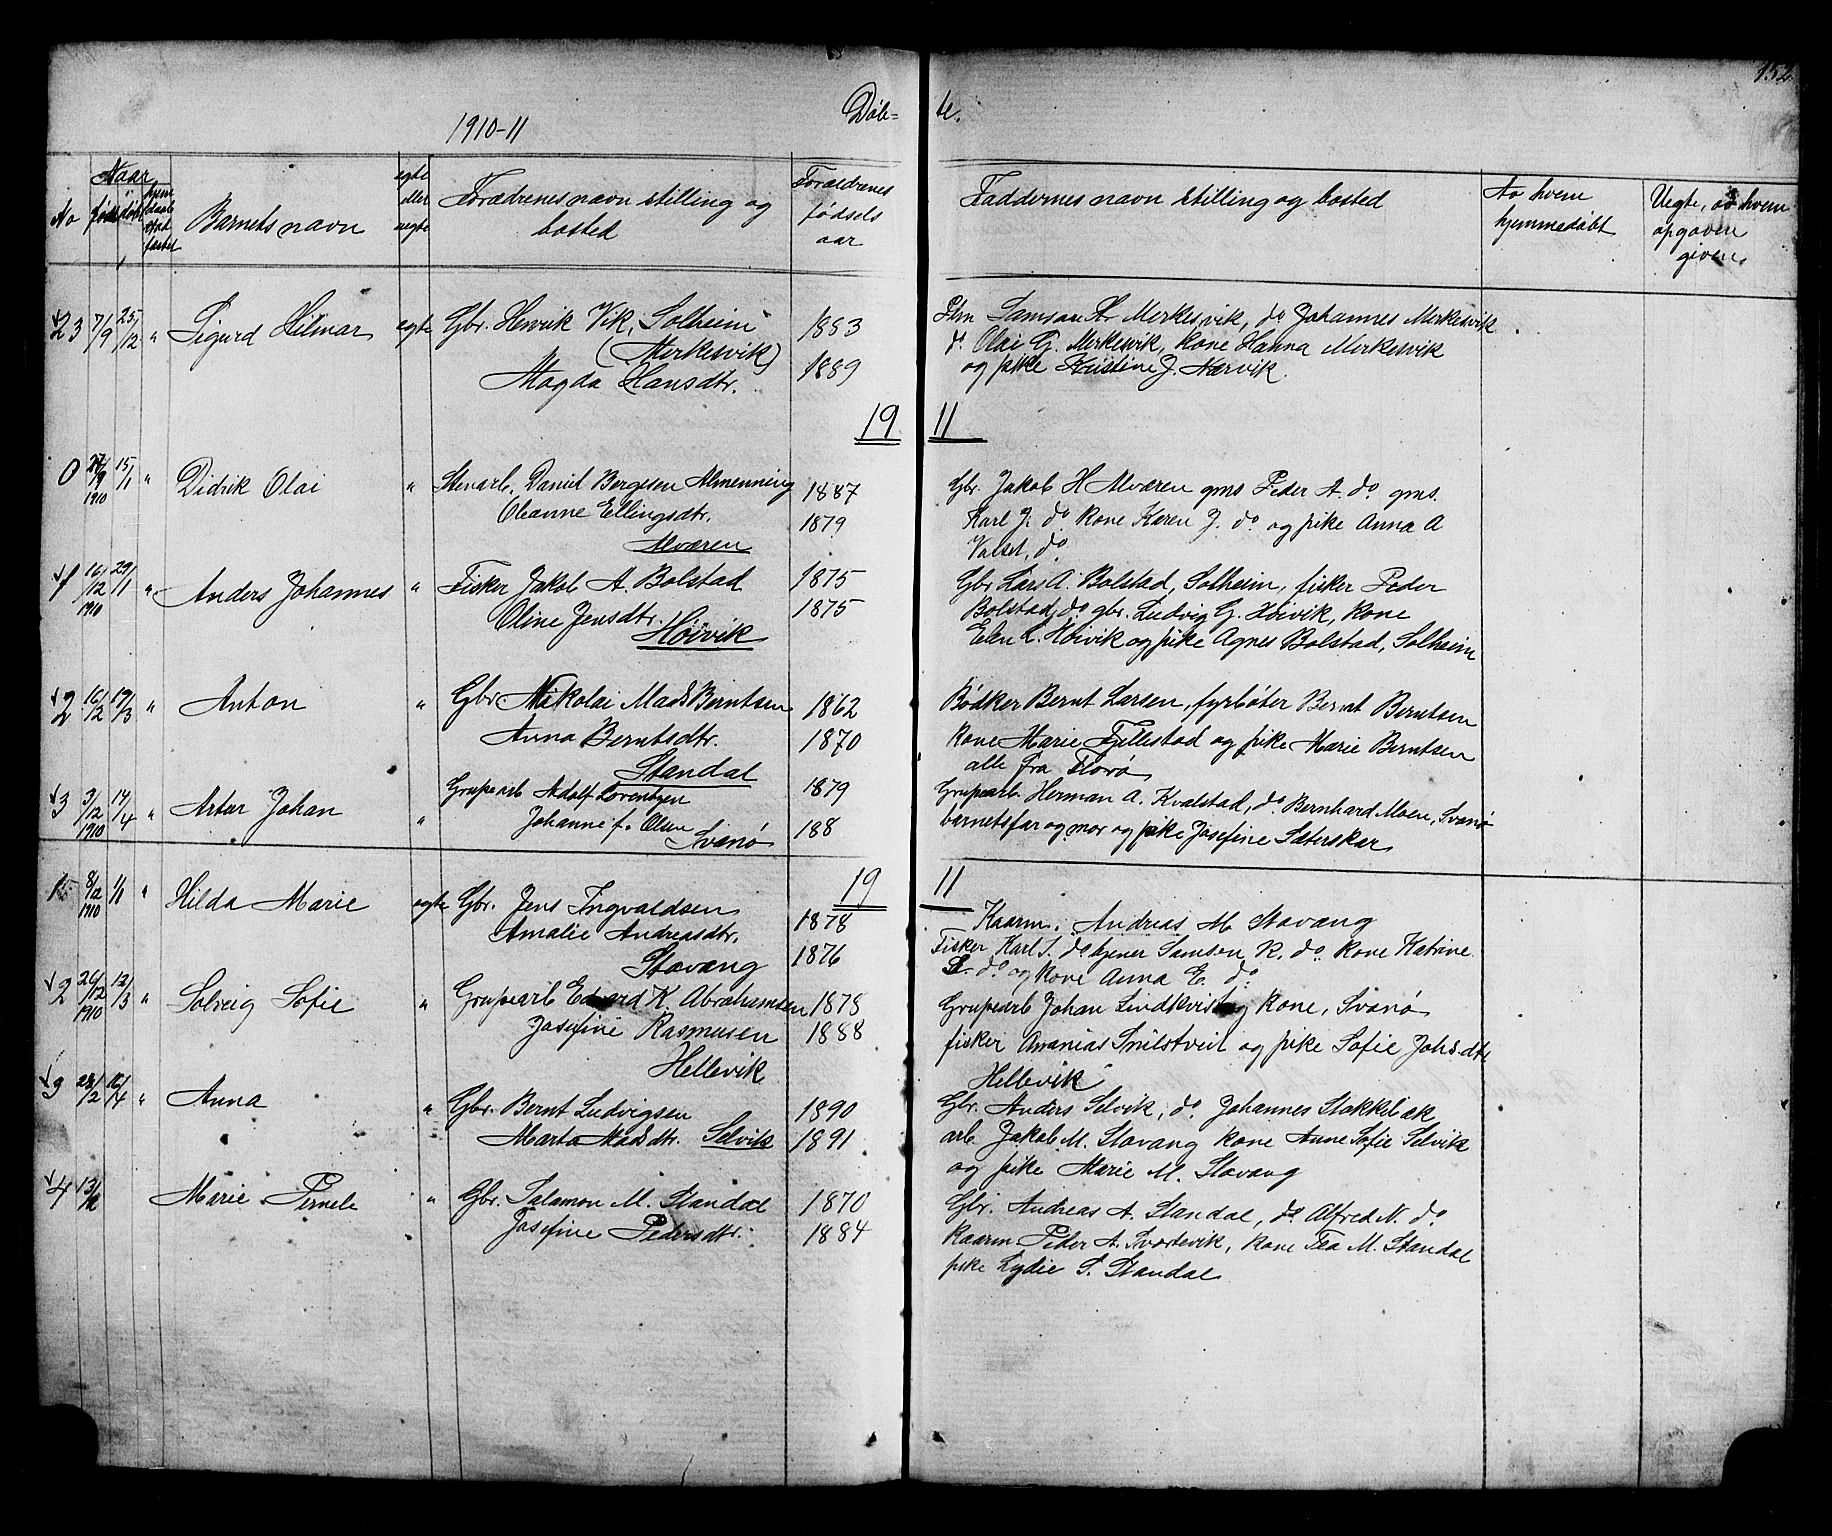 152.
1910-11
Døb= te.
No
Naar
født døbt
hjem daab stad fæstet
Barnets navn
egte eller uegte
Forældrenes navn stilling og bosted
Forældrenes fødsels aar
Faddernes navn stilling og bosted
Av hvem hjemmedøbt
Uegte, av hvem opgaven given.
23 7/9 25/12 " Sigurd Hilmar egte Gbr. Henrik Vik, Solheim 1883
(Merkesvik)
Magda Hansdtr. 1889
Samson Merkesvik, do Johannes Merkesvik
do Olai G. Merkesvik, kone Hanna Merkesvik
og pike Kristine J. Nærvik.
19 11
0 27/9 1910 15/1 " Didrik Olai " Stenarb. Daniel Bergesen Almenning 1887
Oleanne Ellingsdtr. 1879
Alværen
Gbr. Jakob H Alværen gms Peder A. do gms.
Karl J. do kone Karen J. do og pike Anna A
Valset, do
1 16/12 1910 29/1 " Anders Johannes " Fisker Jakob A. Bolstad 1875
Oline Jensdtr. 1875
Høivik
Gbr Lars A. Bolstad, Solheim, fisker Peder
Bolstad, do gbr. Ludvig G. Høivik, kone
Elen L. Høivik og pike Agnes Bolstad, Solheim
2 16/12 12/3 " Anton " Gbr. Nikolai Mads Berntsen 1862
Anna Berntsdtr. 1870
Standal
Bødker Bernt Larsen, fyrbøter Bernt Berntsen
kone Marie Fjellestad og pike Marie Berntsen
alle fra Florø
3 3/12 1910 17/4 " Artur Johan " Grupearb Adolf Lorentzen 1879
Johanne f. Olsen 188
Svanø
Grupearb. Herman A. Kvalstad, do Bernhard Moen, Svanø
barnets far og mor og pike Josefine Sæterskar
19 11
1 8/12 1910 1/1 " Hilda Marie egte Gbr. Jens Ingvaldsen 1878
Amalie Andreasdtr. 1876
Stavang
Kaarm. Andreas M Stavang
Fisker Karl S. do tjener Samson R. do kone Katrine
S. do og kone Anna E. do
2 26/12 1910 12/3 " Solveig Sofie " Grupearb Edvard K. Abrahamsen 1878
Josefine Rasmusen 1888
Hellevik
Grupearb Johan Lindkvist og kone, Svanø
fisker Ananias Smilstveit og pike Sofie Johsdtr
Hellevik
3 28/2 16/4 " Anna " Gbr. Bernt Ludvigsen 1890
Marta Madsdtr. Selvik 1891
Gbr. Anders Selvik, do Johannes Stokkebæk
arb. Jakob M. Stavang kone Anne Sofie Selvik
og pike Marie M. Stavang
4 13/ Marie Pernele " Gbr. Salamon M. Standal 1870
Josefine Pedersdtr. 1884
Gbr. Andreas A. Standal, do Alfred N. do
kaarm Peder A. Svortevik, kone Tea M. Standal
pike Lydie S. Standal